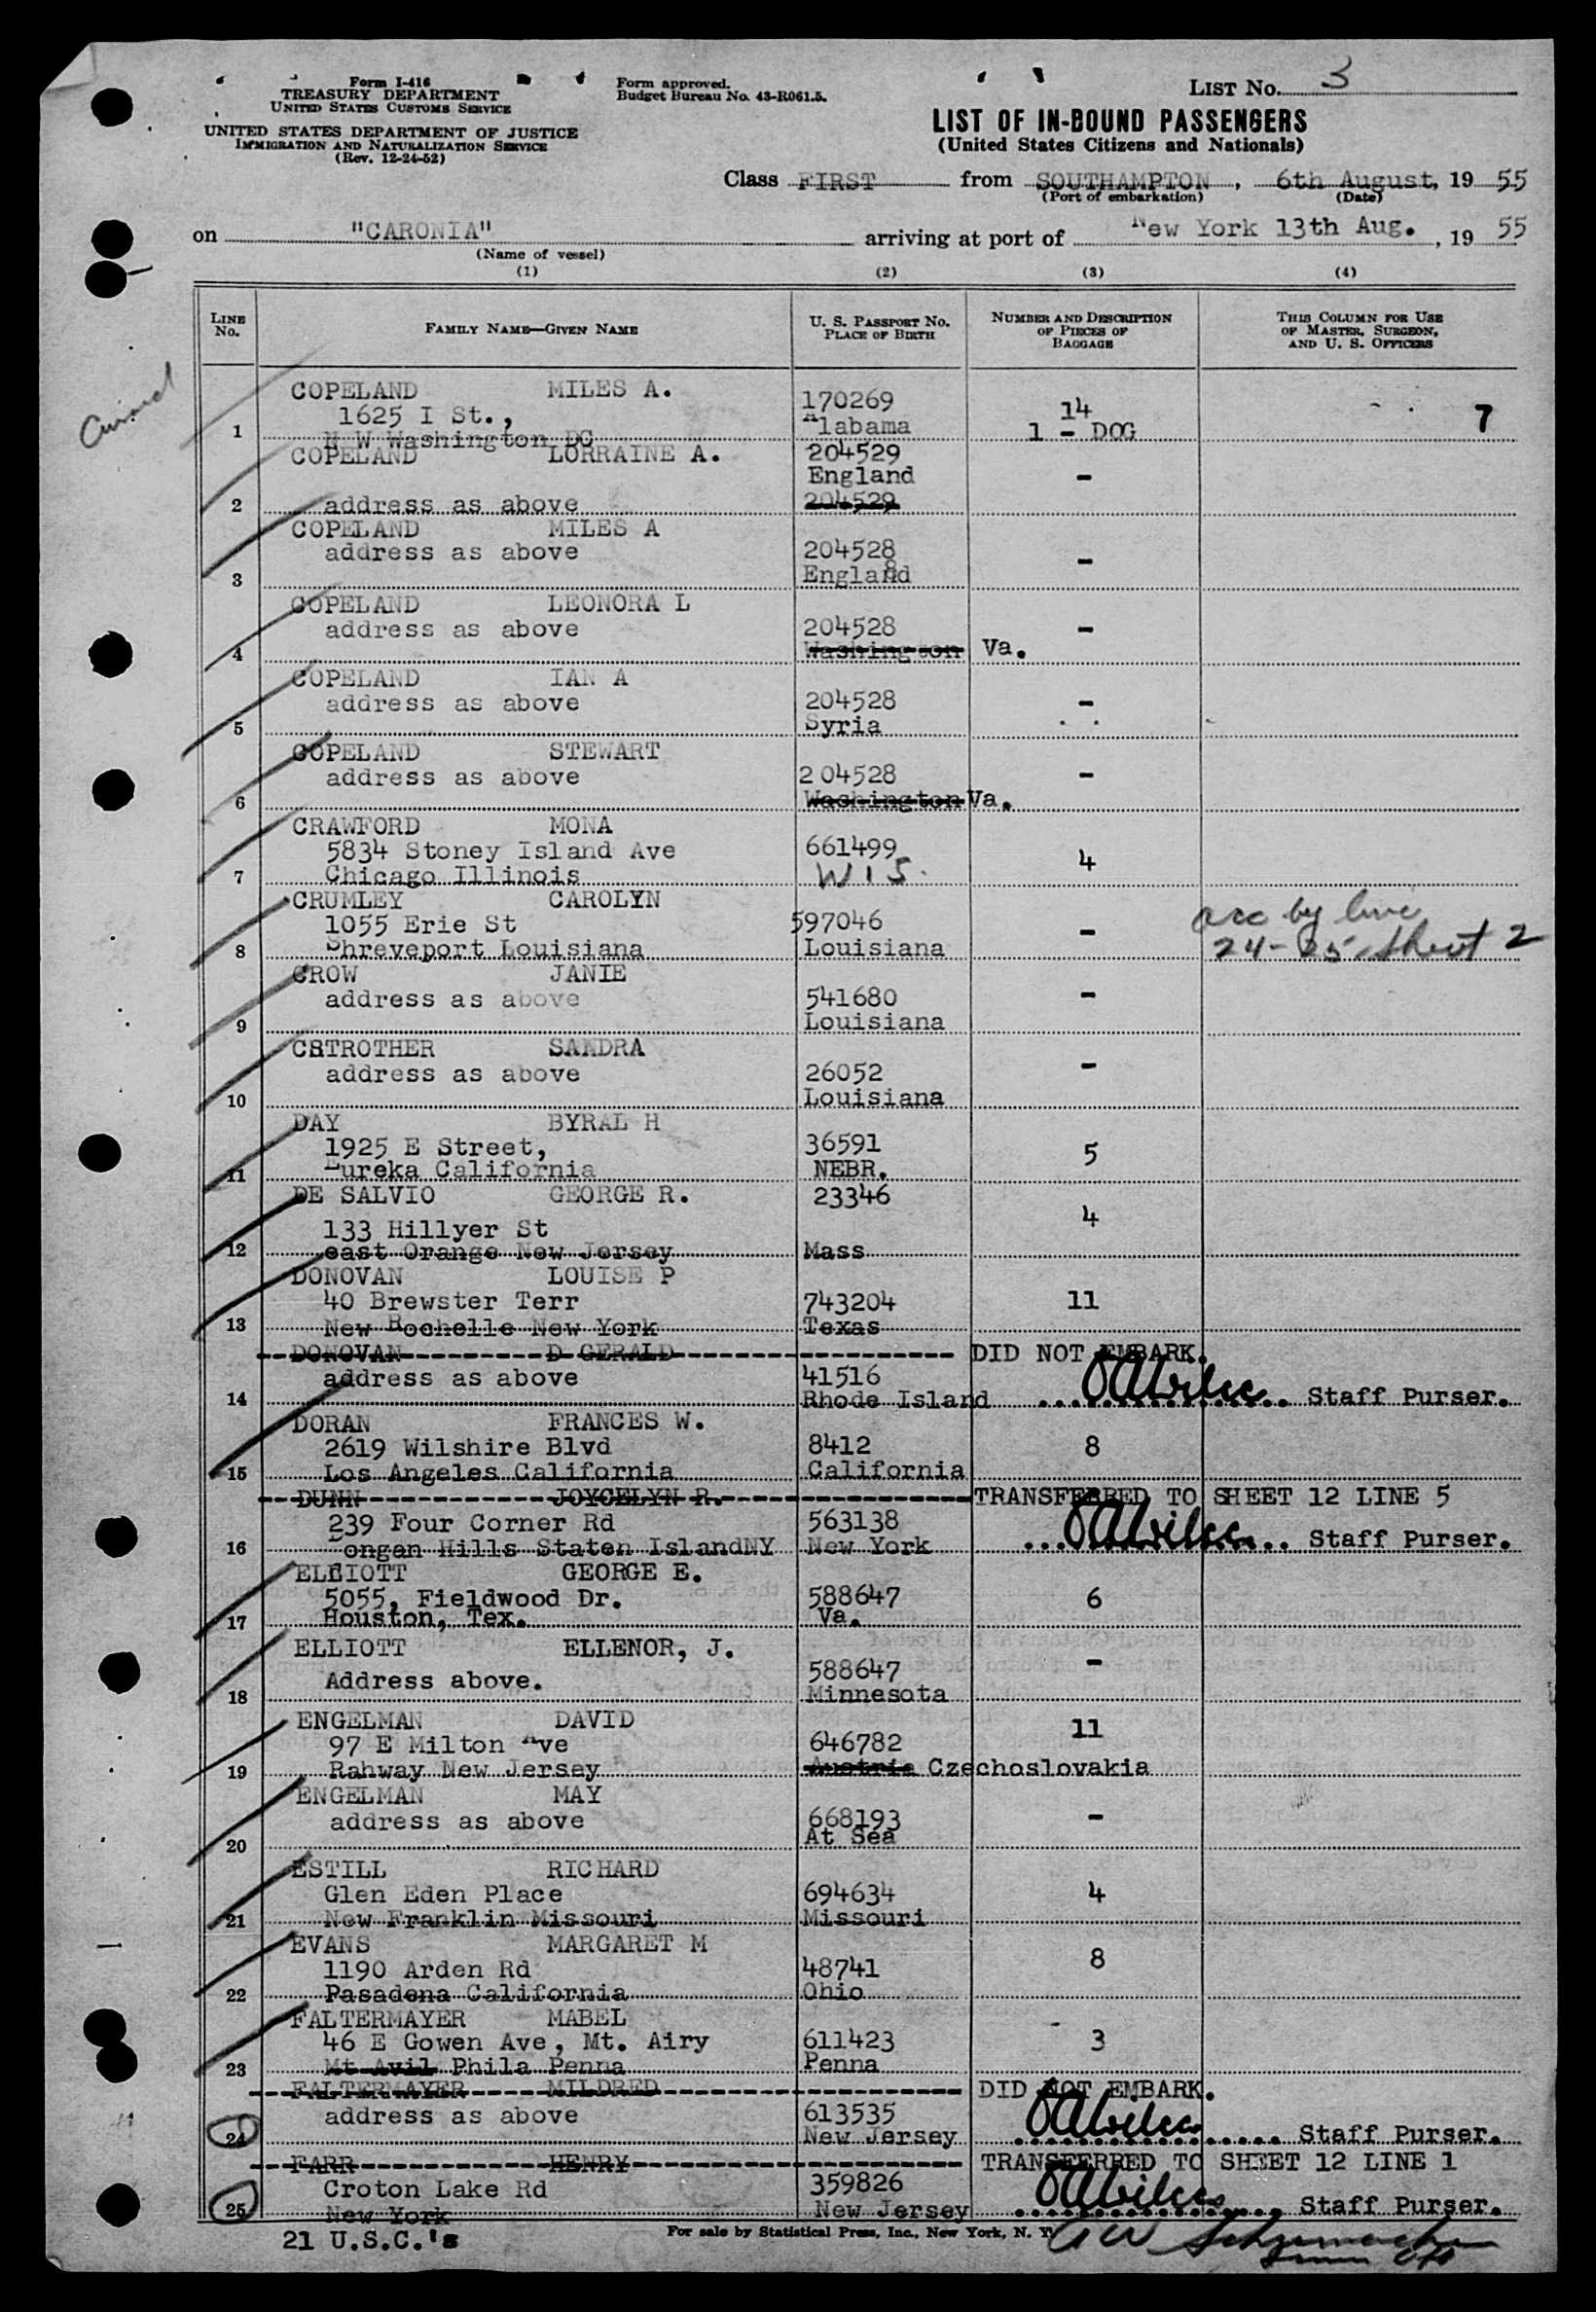 Form I-416
TREASURY DEPARTMENT
UNITED STATES CUSTOMS SERVICE
UNITED STATES DEPARTMENT OF JUSTICE
IMMIGRATION AND NATURALIZATION SERVICE
(Rev. 12-24-52)
Form approved.
Budget Bureau No. 43-R061.5.
LIST NO. 3
LIST OF IN-BOUND PASSENGERS
(United States Citizens and Nationals)
Class FIRST from SOUTHAMPTON, 6th August, 19 55
(Port of embarkation) (Date)
on "CARONIA" arriving at port of New York 13th Aug., 19 55
(Name of vessel)
(1) (2) (3) (4)
LINE NO. FAMILY NAME—GIVEN NAME U. S. PASSPORT NO. PLACE OF BIRTH NUMBER AND DESCRIPTION OF PIECES OF BAGGAGE THIS COLUMN FOR USE OF MASTER, SURGEON, AND U. S. OFFICERS
COPELAND MILES A. 170269
1625 I St., Alabama 14 7
1 N W Washington DC 1 - DOG
COPELAND LORRAINE A. 204529
England -
2 address as above 204529
COPELAND MILES A
address as above 204528 -
3 England
COPELAND LEONORA L
address as above 204528 -
4 Washington Va.
COPELAND IAN A
address as above 204528 -
5 Syria
COPELAND STEWART
address as above 204528 -
6 Washington Va.
CRAWFORD MONA
5834 Stoney Island Ave 661499 4
7 Chicago Illinois WIS.
CRUMLEY CAROLYN
1055 Erie St 597046 - by line
8 Shreveport Louisiana Louisiana 24-25 sheet 2
CROW JANIE
address as above 541680 -
9 Louisiana
CSTROTHER SANDRA
address as above 26052 -
10 Louisiana
DAY BYRAL H
1925 E Street, 36591 5
11 Eureka California NEBR.
DE SALVIO GEORGE R. 23346
133 Hillyer St 4
12 east Orange New Jersey Mass
DONOVAN LOUISE P
40 Brewster Terr 743204 11
13 New Rochelle New York Texas
DONOVAN D GERALD DID NOT EMBARK.
address as above 41516
14 Rhode Island Staff Purser.
DORAN FRANCES W.
2619 Wilshire Blvd 8412 8
15 Los Angeles California California
DUNN JOYCELYN R. TRANSFERRED TO SHEET 12 LINE 5
239 Four Corner Rd 563138
16 Dongan Hills Staten IslandNY New York Staff Purser.
ELLIOTT GEORGE E.
5055, Fieldwood Dr. 588647 6
17 Houston, Tex. Va.
ELLIOTT ELLENOR, J.
Address above. 588647 -
18 Minnesota
ENGELMAN DAVID
97 E Milton Ave 646782 11
19 Rahway New Jersey Austria Czechoslovakia
ENGELMAN MAY
address as above 668193 -
20 At Sea
ESTILL RICHARD
Glen Eden Place 694634 4
21 New Franklin Missouri Missouri
EVANS MARGARET M
1190 Arden Rd 48741 8
22 Pasadena California Ohio
FALTERMAYER MABEL
46 E Gowen Ave, Mt. Airy 611423 3
23 Mt Avil Phila Penna Penna
FALTERMAYER MILDRED DID NOT EMBARK.
address as above 613535
24 New Jersey Staff Purser.
FARR HENRY TRANSFERRED TO SHEET 12 LINE 1
Croton Lake Rd 359826
25 New York New Jersey Staff Purser.
21 U.S.C.'s
For sale by Statistical Press, Inc., New York, N. Y.